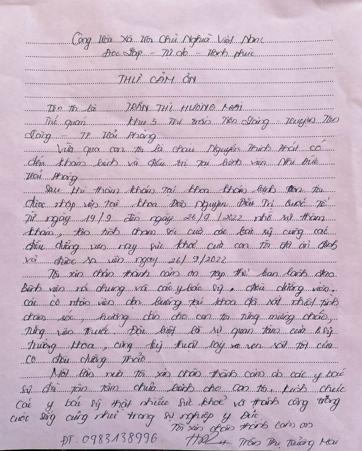 Cộng Hòa Xã Hội Chủ Nghĩa Việt Nam
Độc lập - Tự do - Hạnh phúc
THƯ CẢM ƠN
Tên tôi là TRẦN THỊ HƯƠNG MAI
Thị trấn Tiên Lãng Huyện Tiên
Lãng - TP Hải Phòng
Vừa qua con tôi là cháu Nguyễn Thịnh Phát có
đến khám bệnh và điều trị tại bệnh viện Nhi Đức
Hải Phòng
Sau khi thăm khám tại khoa khám bệnh con tôi
được nhập viện tại khoa Điều Trị Quốc Tế
Từ ngày 19/9 đến ngày 26/9/2022 nhờ sự thăm
khám, tận tình chăm sóc của các bác sỹ cùng các
điều dưỡng viên nay sức khỏe của con tôi đã ổn định
và được ra viện ngày 26/9/2022
Tôi xin chân thành cảm ơn tập thể ban lãnh đạo
Bệnh viện nói chung và các y bác sỹ, điều dưỡng viên,
các cô nhân viên dinh dưỡng tại khoa đã rất nhiệt tình
chăm sóc, hướng dẫn cho con tôi từng miếng cháo,
từng viên thuốc. Đặc biệt là sự quan tâm của bác sỹ
trưởng khoa, cùng kỹ thuật lấy ven rất tốt của
cô điều dưỡng
Một lần nữa tôi xin chân thành cảm ơn các y bác
sỹ đã tận tâm chữa bệnh cho con tôi, kính chúc
các y bác sỹ thật nhiều sức khỏe và thành công trong
cuộc sống cũng như trong sự nghiệp y đức
Tôi xin chân thành cảm ơn
ĐT: 0983138996
Trần Thị Hương Mai